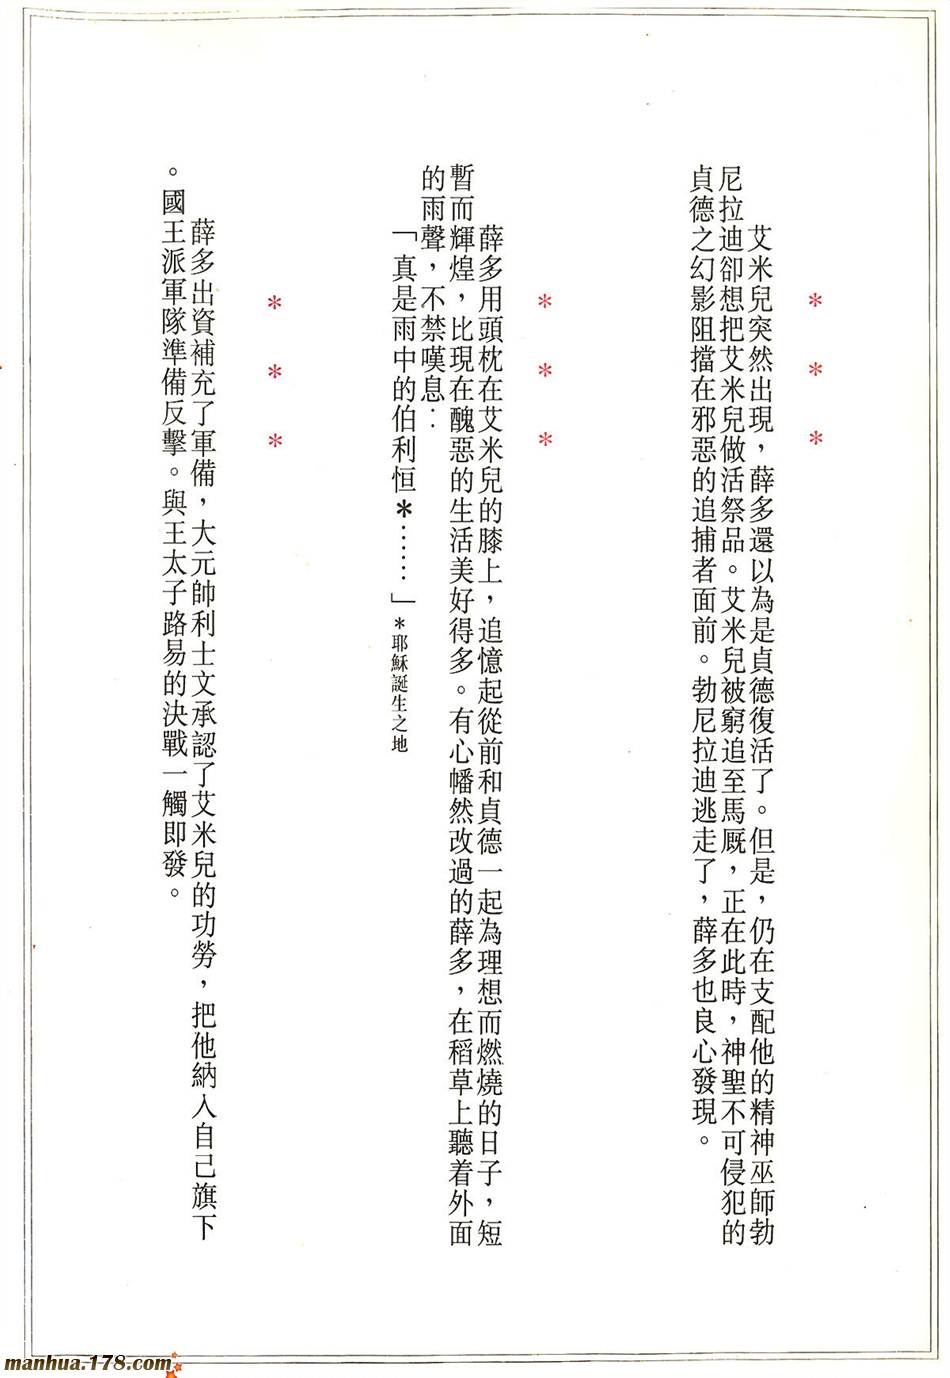 ＊ ＊ ＊
艾米兒突然出現，薛多還以為是貞德復活了。但是，仍在支配他的精神巫師勃
尼拉迪卻想把艾米兒做活祭品。艾米兒被窮追至馬厩，正在此時，神聖不可侵犯的
貞德之幻影阻擋在邪惡的追捕者面前。勃尼拉迪逃走了，薛多也良心發現。
＊ ＊ ＊
薛多用頭枕在艾米兒的膝上，追憶起從前和貞德一起為理想而燃燒的日子，短
暫而輝煌，比現在醜惡的生活美好得多。有心幡然改過的薛多，在稻草上聽着外面
的雨聲，不禁嘆息：
「真是雨中的伯利恒＊……」＊耶穌誕生之地
＊ ＊ ＊
薛多出資補充了軍備，大元帥利士文承認了艾米兒的功勞，把他納入自己旗下
。國王派軍隊準備反擊。與王太子路易的決戰一觸即發。
manhua.178.com